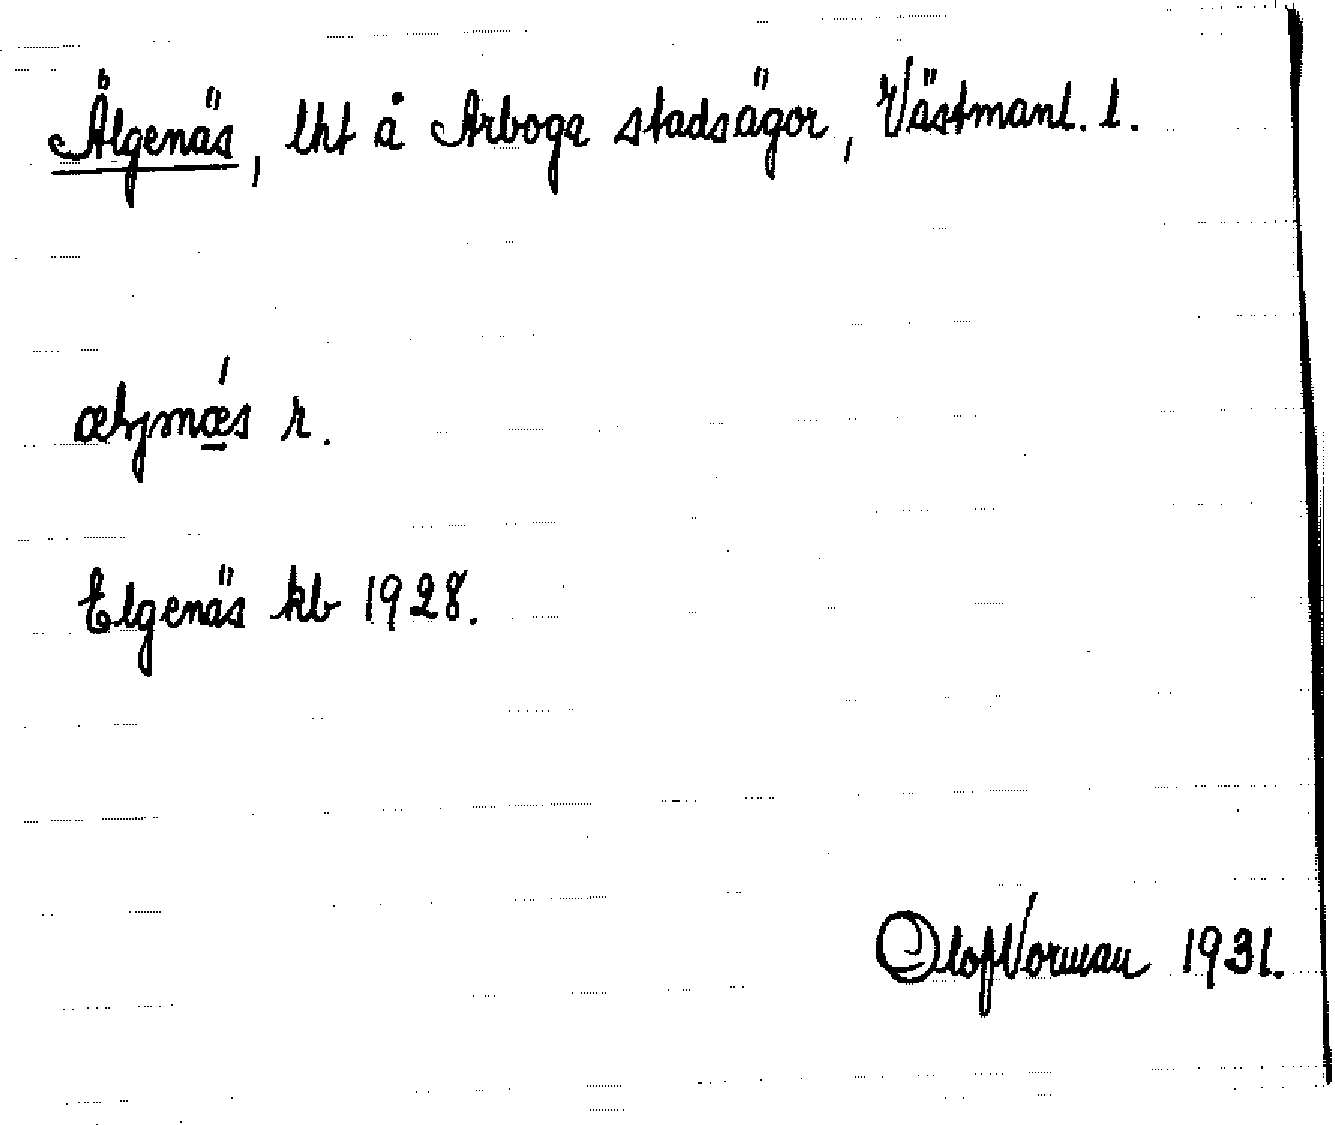 Älgenäs, lht å Arboga stadsägor, Västmanl. l.
æljnǽs r.
Elgenäs kb 1928.
Olof Norman 1931.